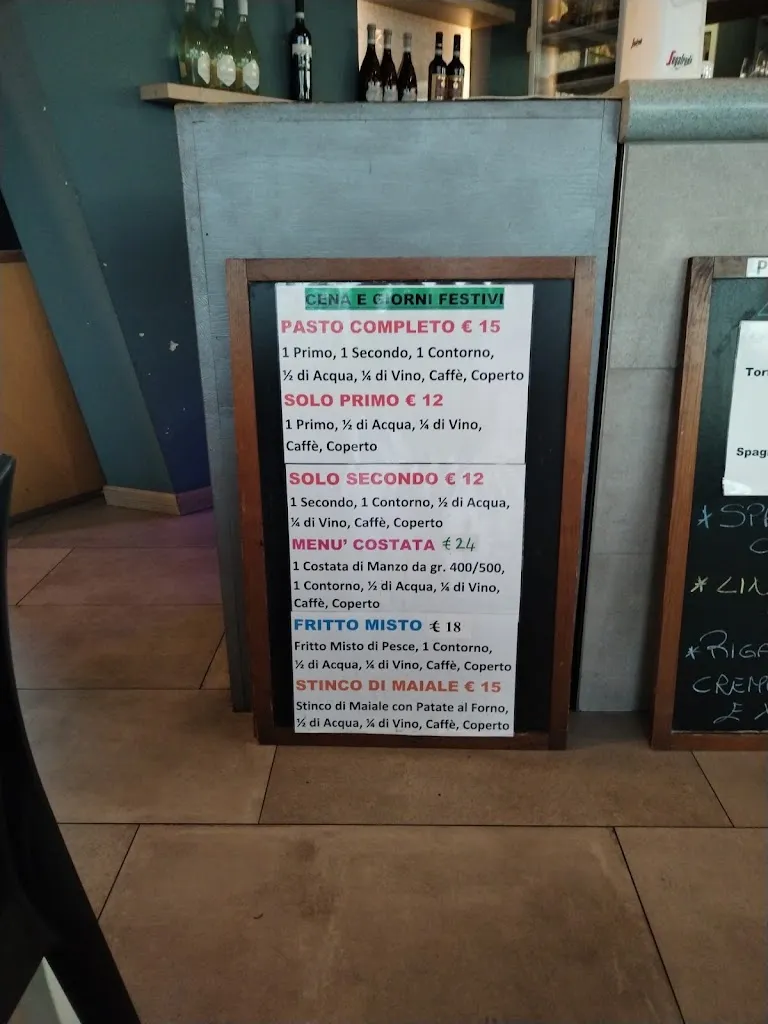 Segafredo
CENA E GIORNI FESTIVI
PASTO COMPLETO € 15
1 Primo, 1 Secondo, 1 Contorno,
½ di Acqua, ¼ di Vino, Caffè, Coperto
SOLO PRIMO € 12
1 Primo, ½ di Acqua, ¼ di Vino,
Caffè, Coperto
SOLO SECONDO € 12
1 Secondo, 1 Contorno, ½ di Acqua,
¼ di Vino, Caffè, Coperto
MENU' COSTATA €24
1 Costata di Manzo da gr. 400/500,
1 Contorno, ½ di Acqua, ¼ di Vino,
Caffè, Coperto
FRITTO MISTO € 18
Fritto Misto di Pesce, 1 Contorno,
½ di Acqua, ¼ di Vino, Caffè, Coperto
STINCO DI MAIALE € 15
Stinco di Maiale con Patate al Forno,
½ di Acqua, ¼ di Vino, Caffè, Coperto
P
Tor
Spag
* SP
* LIN
* RIGA
CREM
E